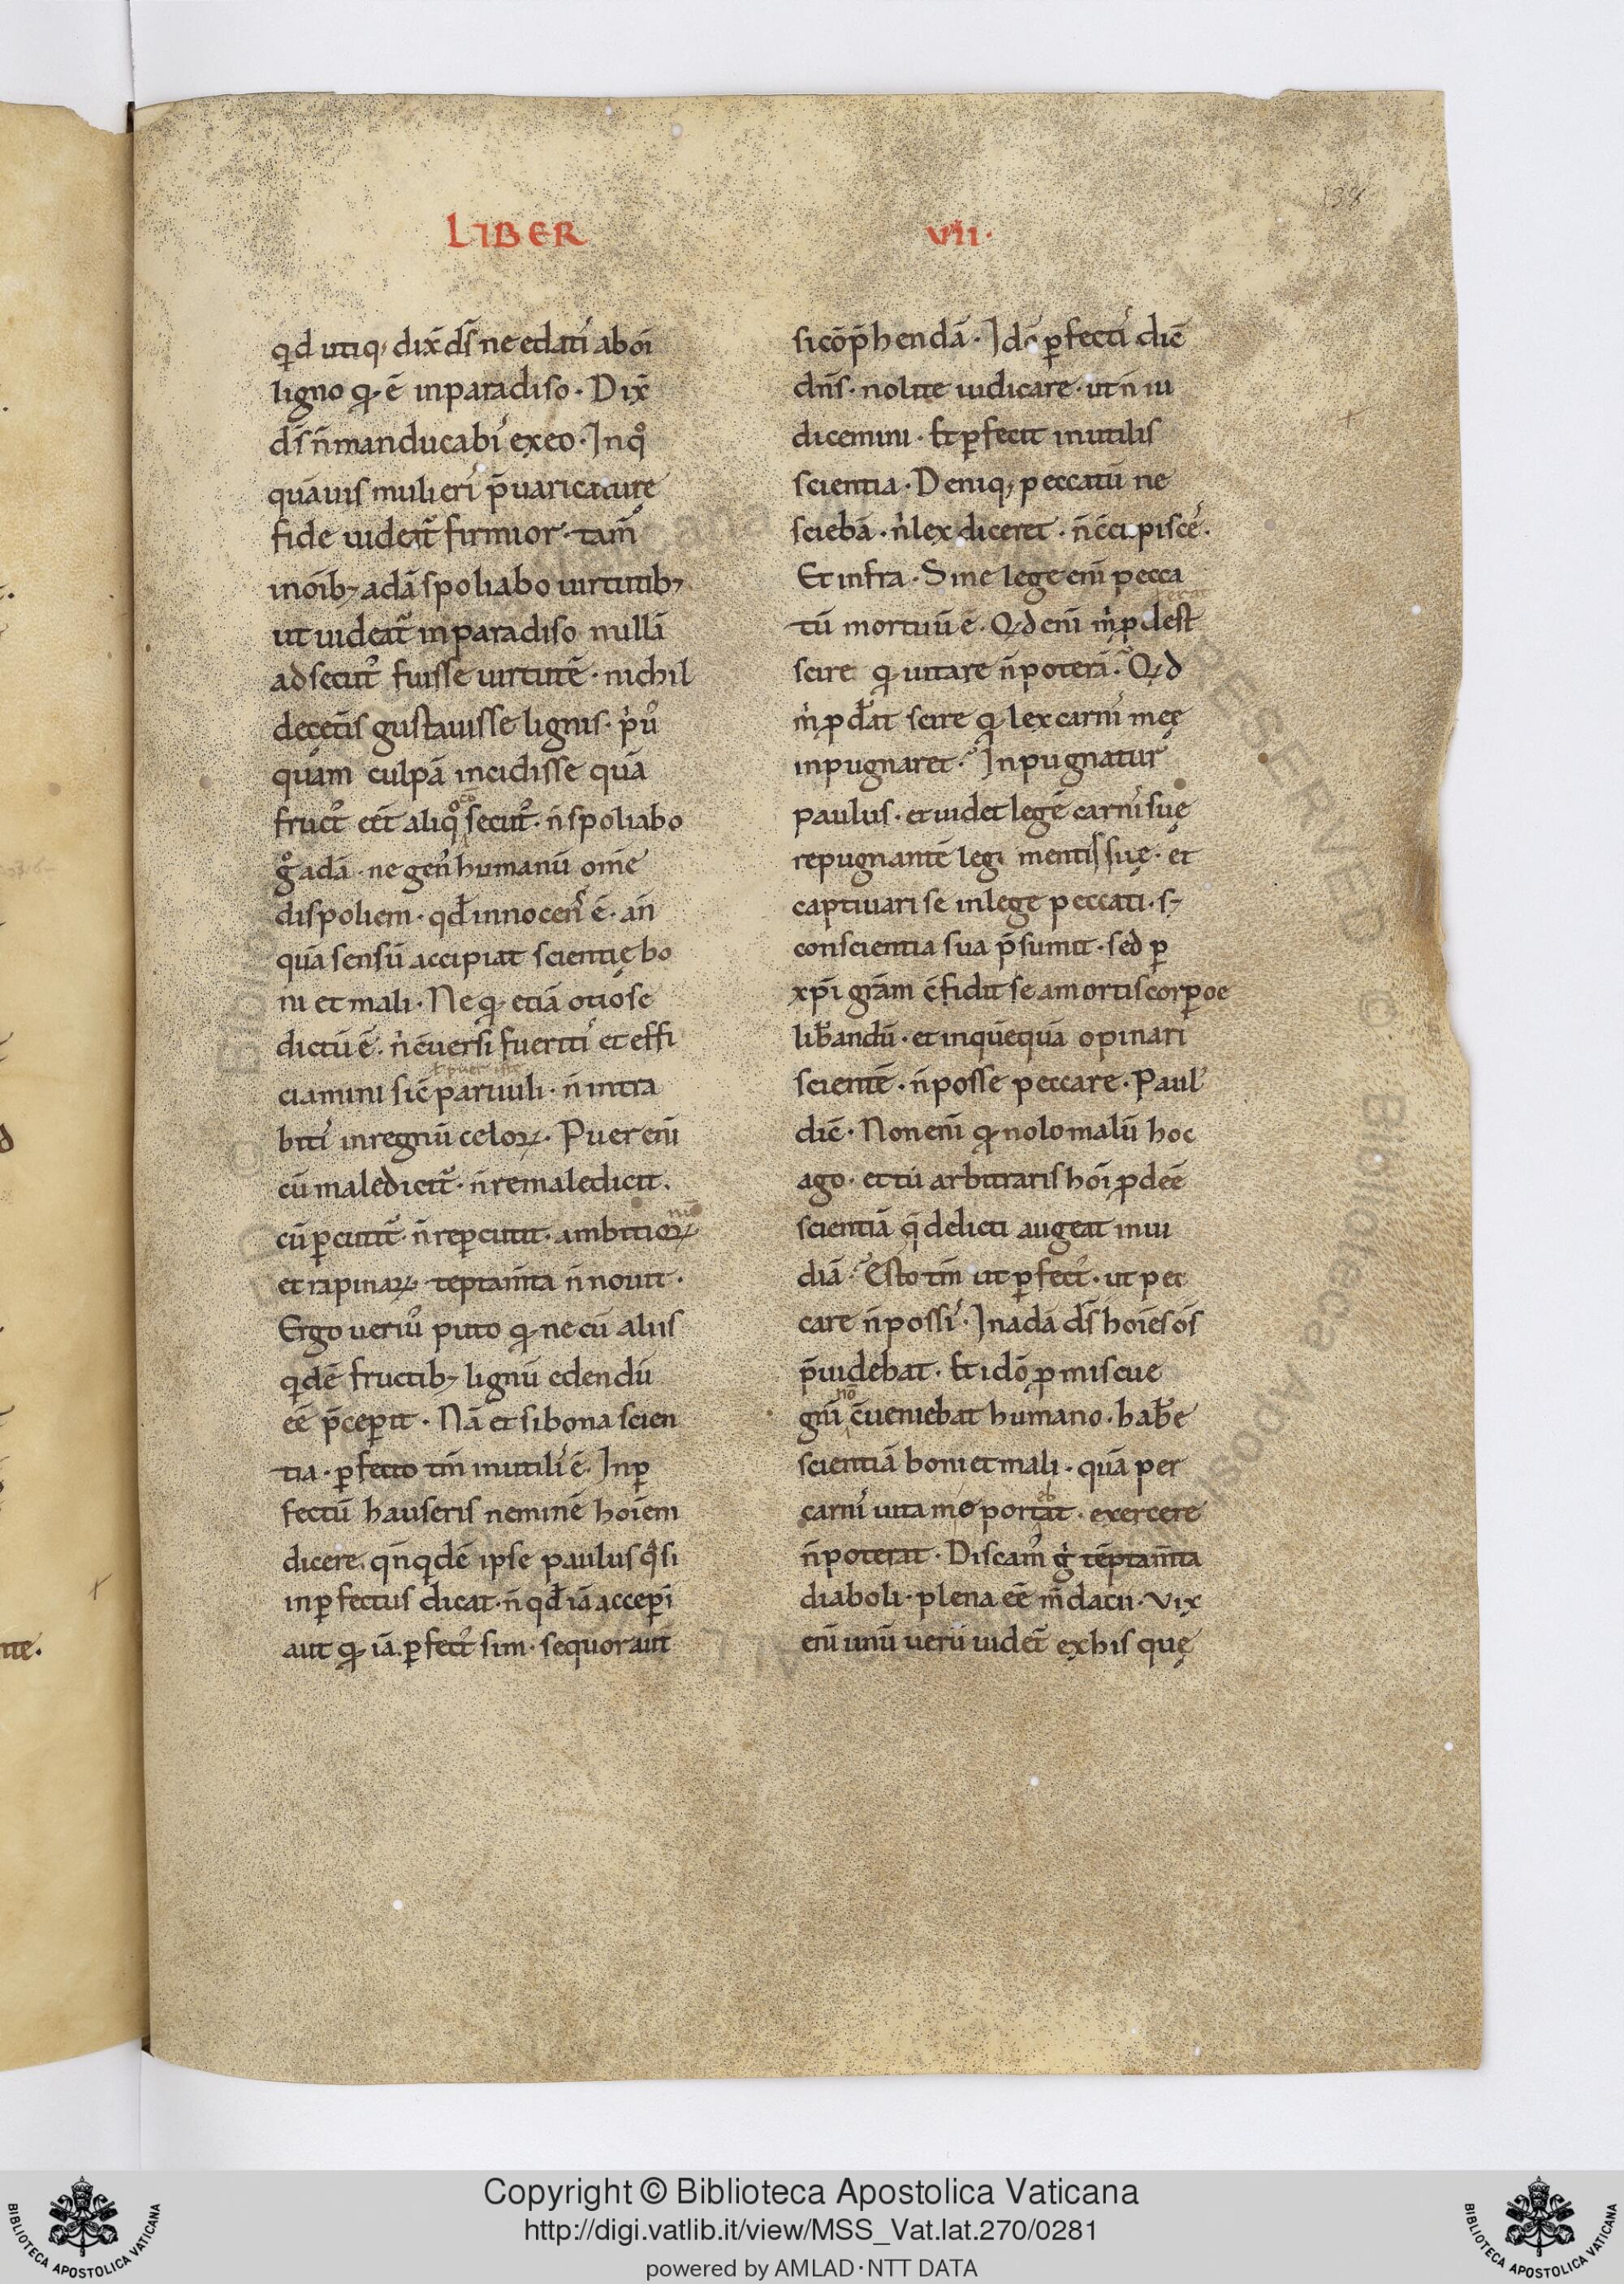 LIBER
VII·
138
qd utiq; dix̄ ds̄ ne edati᷒ ab oī
ligno q; ē in paradiso · Dix̄
ds̄ n̄ manducabi᷒ ex eo · In qͦ
quāuis mulieri᷒ p̄uaricaturę
fide uideat᷑ firmior · tam̄
in oīb; adā spoliabo uirtutib;
ut uideat᷑ in paradiso nullā
ad secut᷒ fuisse uirtutē · nichil
de cet̄is gustauisse lignis · p᷒uͦ
quam culpā incidisse quā
fruct᷒ eēt aliqͦ secut᷒ · n̄ spoliabo
gͦ adā · ne gen᷒ humanū om̄e
dispoliem · qđ innocen᷒ ē · an̄
quā sensū accipiat scientię bo
ni et mali · Ne q; etiā otiose
dictū ē · n᷒ c̄uersi fueriti᷒ et effi
ciamini sic̄ paruuli · n̄ intra
biti᷒ in regnū celoꝝ · Puer eni᷒
cū maledicit᷑ · n̄ remaledicit ·
cū ꝑcutit᷑ · n̄ reꝑcutit · ambitioꝝ
et rapinaꝝ teptam̄ta n̄ nouit ·
Ergo ueriu᷒ puto q; ne cū aliis
qdē fructib; lignū edendū
eē p̄ceꝑit · Nā et si bona scien
tia · ꝑfecto tm̄ inutili᷒ ē · Inꝑ
fectū hauseris neminē hoīem
dicere · qn̄ qdē ipse paulus q᷒si
inꝑfectus dicat · n̄ qđ iā acceꝑī
aut q; iā ꝑfect᷒ sim · sequor aut̄
si cōp̄hendā · Idō ꝑfecti᷒ dic̄
dn̄s · nolite iudicare · ut n̄ iu
dicemini · Et ꝑfecit inutilis
scientia · Deniq; peccatū ne
sciebā · n᷒ lex diceret · n̄ c̄cupisce᷒ ·
Et infra · Sine lege eni᷒ pecca
tū mortuū ē · Qd enī m᷒ ꝓdest
scire q; uitare n̄ poterā · Qd
m᷒ ꝓdāt scire q; lex carni᷒ meę
inpugnaret · Inpugnatur
paulus · et uidet legē carni᷒ suę
repugnantē legi mentis suę · et
captiuari se in lege peccati · s;
conscientia sua p̄sumit · sed ꝑ
xp̄i gr̄am c̄fidit se a mortis corꝑoe
lib̄andū · et in quēquā opinari
scientē · n̄ posse peccare · Paul᷒
dic̄ · Non enī q; nolo malū hoc
ago · et tu arbitraris hoi᷒ ꝓdeē
scientiā q̄ delicti augeat inui
diā · Esto tm̄ ut ꝑfect᷒ · ut pec
care n̄ possi᷒ · In adā ds̄ hoīes oīs
p̄uidebat · Et idō ꝓmiscue
gn̄i c̄ueniebat humano · hab̄e
scientiā boni et mali · quā per
carni᷒ uita me portāt · exercere
n̄ poterat · Discam᷒ g᷒ tēptam̄ta
diaboli · plena eē m̄dacii · Vix
eni᷒ unū uerū uidet᷑ ex his quę
Copyright © Biblioteca Apostolica Vaticana
http://digi.vatlib.it/view/MSS_Vat.lat.270/0281
powered by AMLAD·NTT DATA
BIBLIOTECA APOSTOLICA VATICANA
BIBLIOTECA APOSTOLICA VATICANA